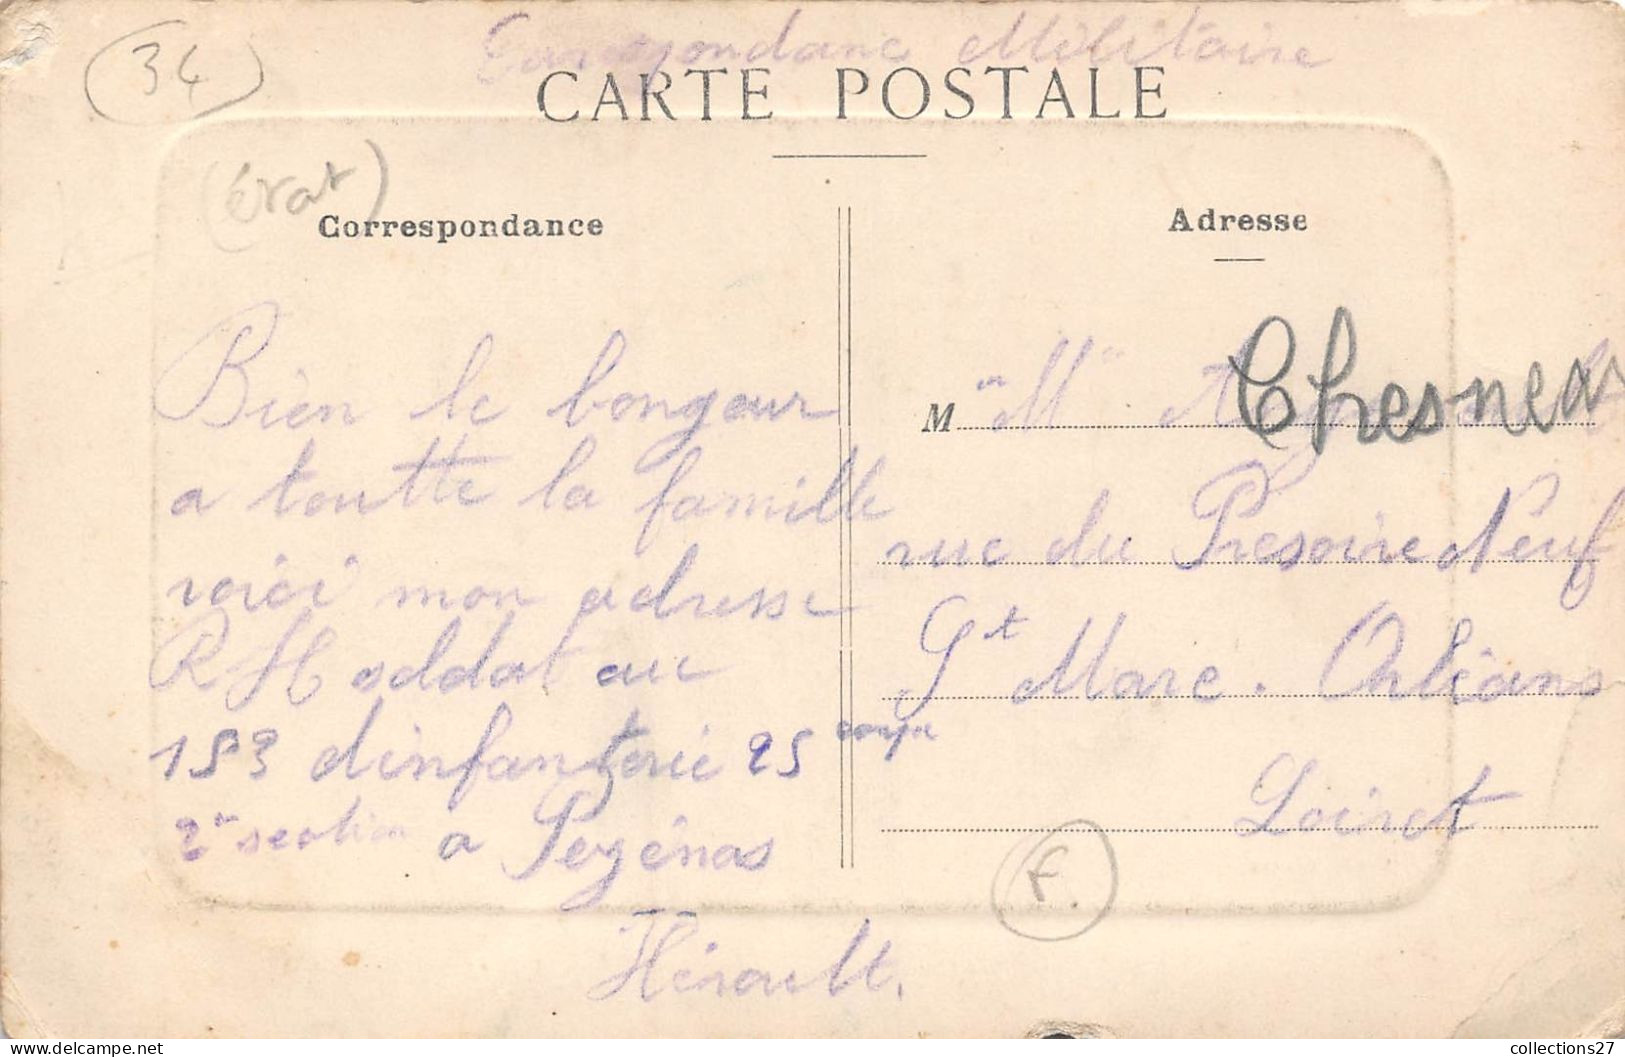 Correspondance Militaire
34
CARTE POSTALE
(état)
Correspondance
Bien le bongour
a toutte la famille
voici mon adresse
R H soldat au
153 dinfanterie 25 comp
2e section a Pezénas
Hérault.
Adresse
M "M"
Chesneau
rue du Presoire Neuf
St Marc. Orléans
Loiret
F.
collections27